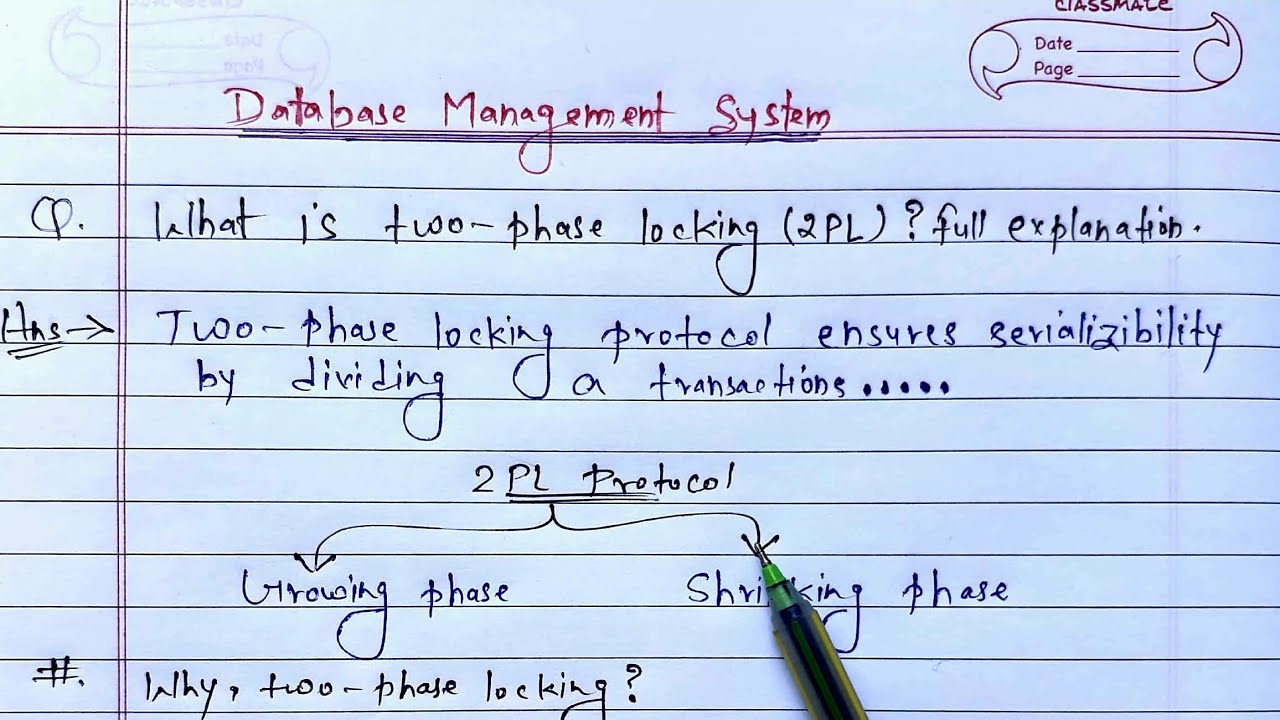 CLASSMATE
Date
Page
Database Management System
Q. What is two-phase locking (2PL)? full explanation.
Ans → Two-phase locking protocol ensures serializibility
by dividing a transactions.....
2PL Protocol
Growing phase
Shrinking phase
#. Why, two-phase locking?